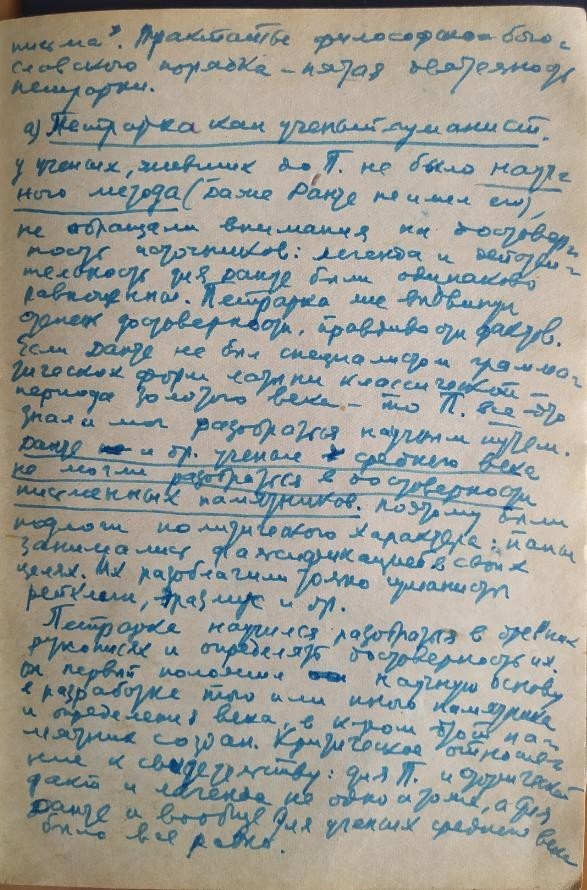 письма". Трактаты философско-бого-
словского порядка – пятая деятельность
Петрарки.
а) Петрарка как ученый-гуманист.
У ученых, живших до П. не было науч-
ного метода (даже Данте не имел его),
не обращали внимания на достовер-
ность источников: легенда и действи-
тельность для Данте были одинаково
равноценны. Петрарка же
достоверность, правдивость фактов.
Если Данте не был специалистом грамма-
тических форм латыни классической –
периода золотого века – то П. все это
знал и мог разобраться научным путем.
Данте и др. ученые среднего века
не могли разобраться в достоверности
письменных памятников. Поэтому были
подлоги политического характера: папы
занимались фальсификацией в своих
целях. Их разоблачили только гуманисты
Рейхлин, Эразмус и др.
Петрарка научился разобраться в древних
рукописях и определять достоверность их.
Он первый положил научную основу
в разработке того или иного памятника
и определения века, в к-ром этот па-
мятник создан. Критическое отноше-
ние к свидетельству: для П. историческ.
факт и легенда не одно и то же, а для
Данте и вообще для ученых среднего века
было все равно.